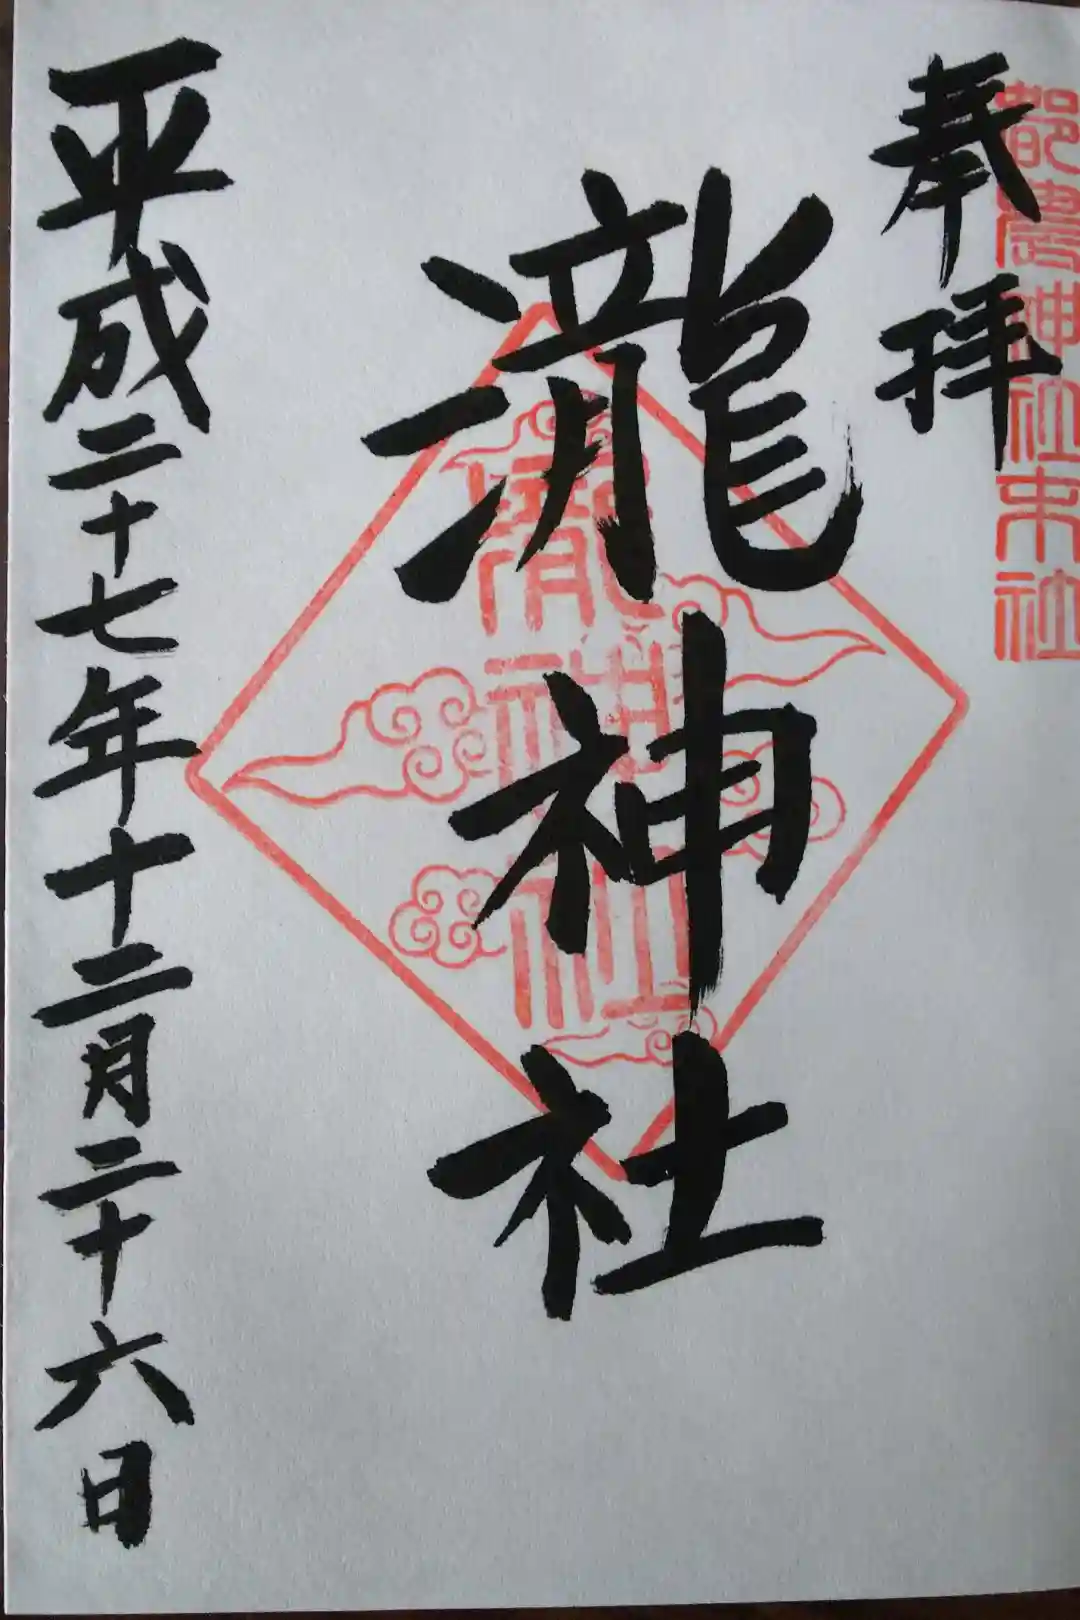 奉拝
都農神社末社
瀧神社
瀧神社
平成二十七年十二月二十六日